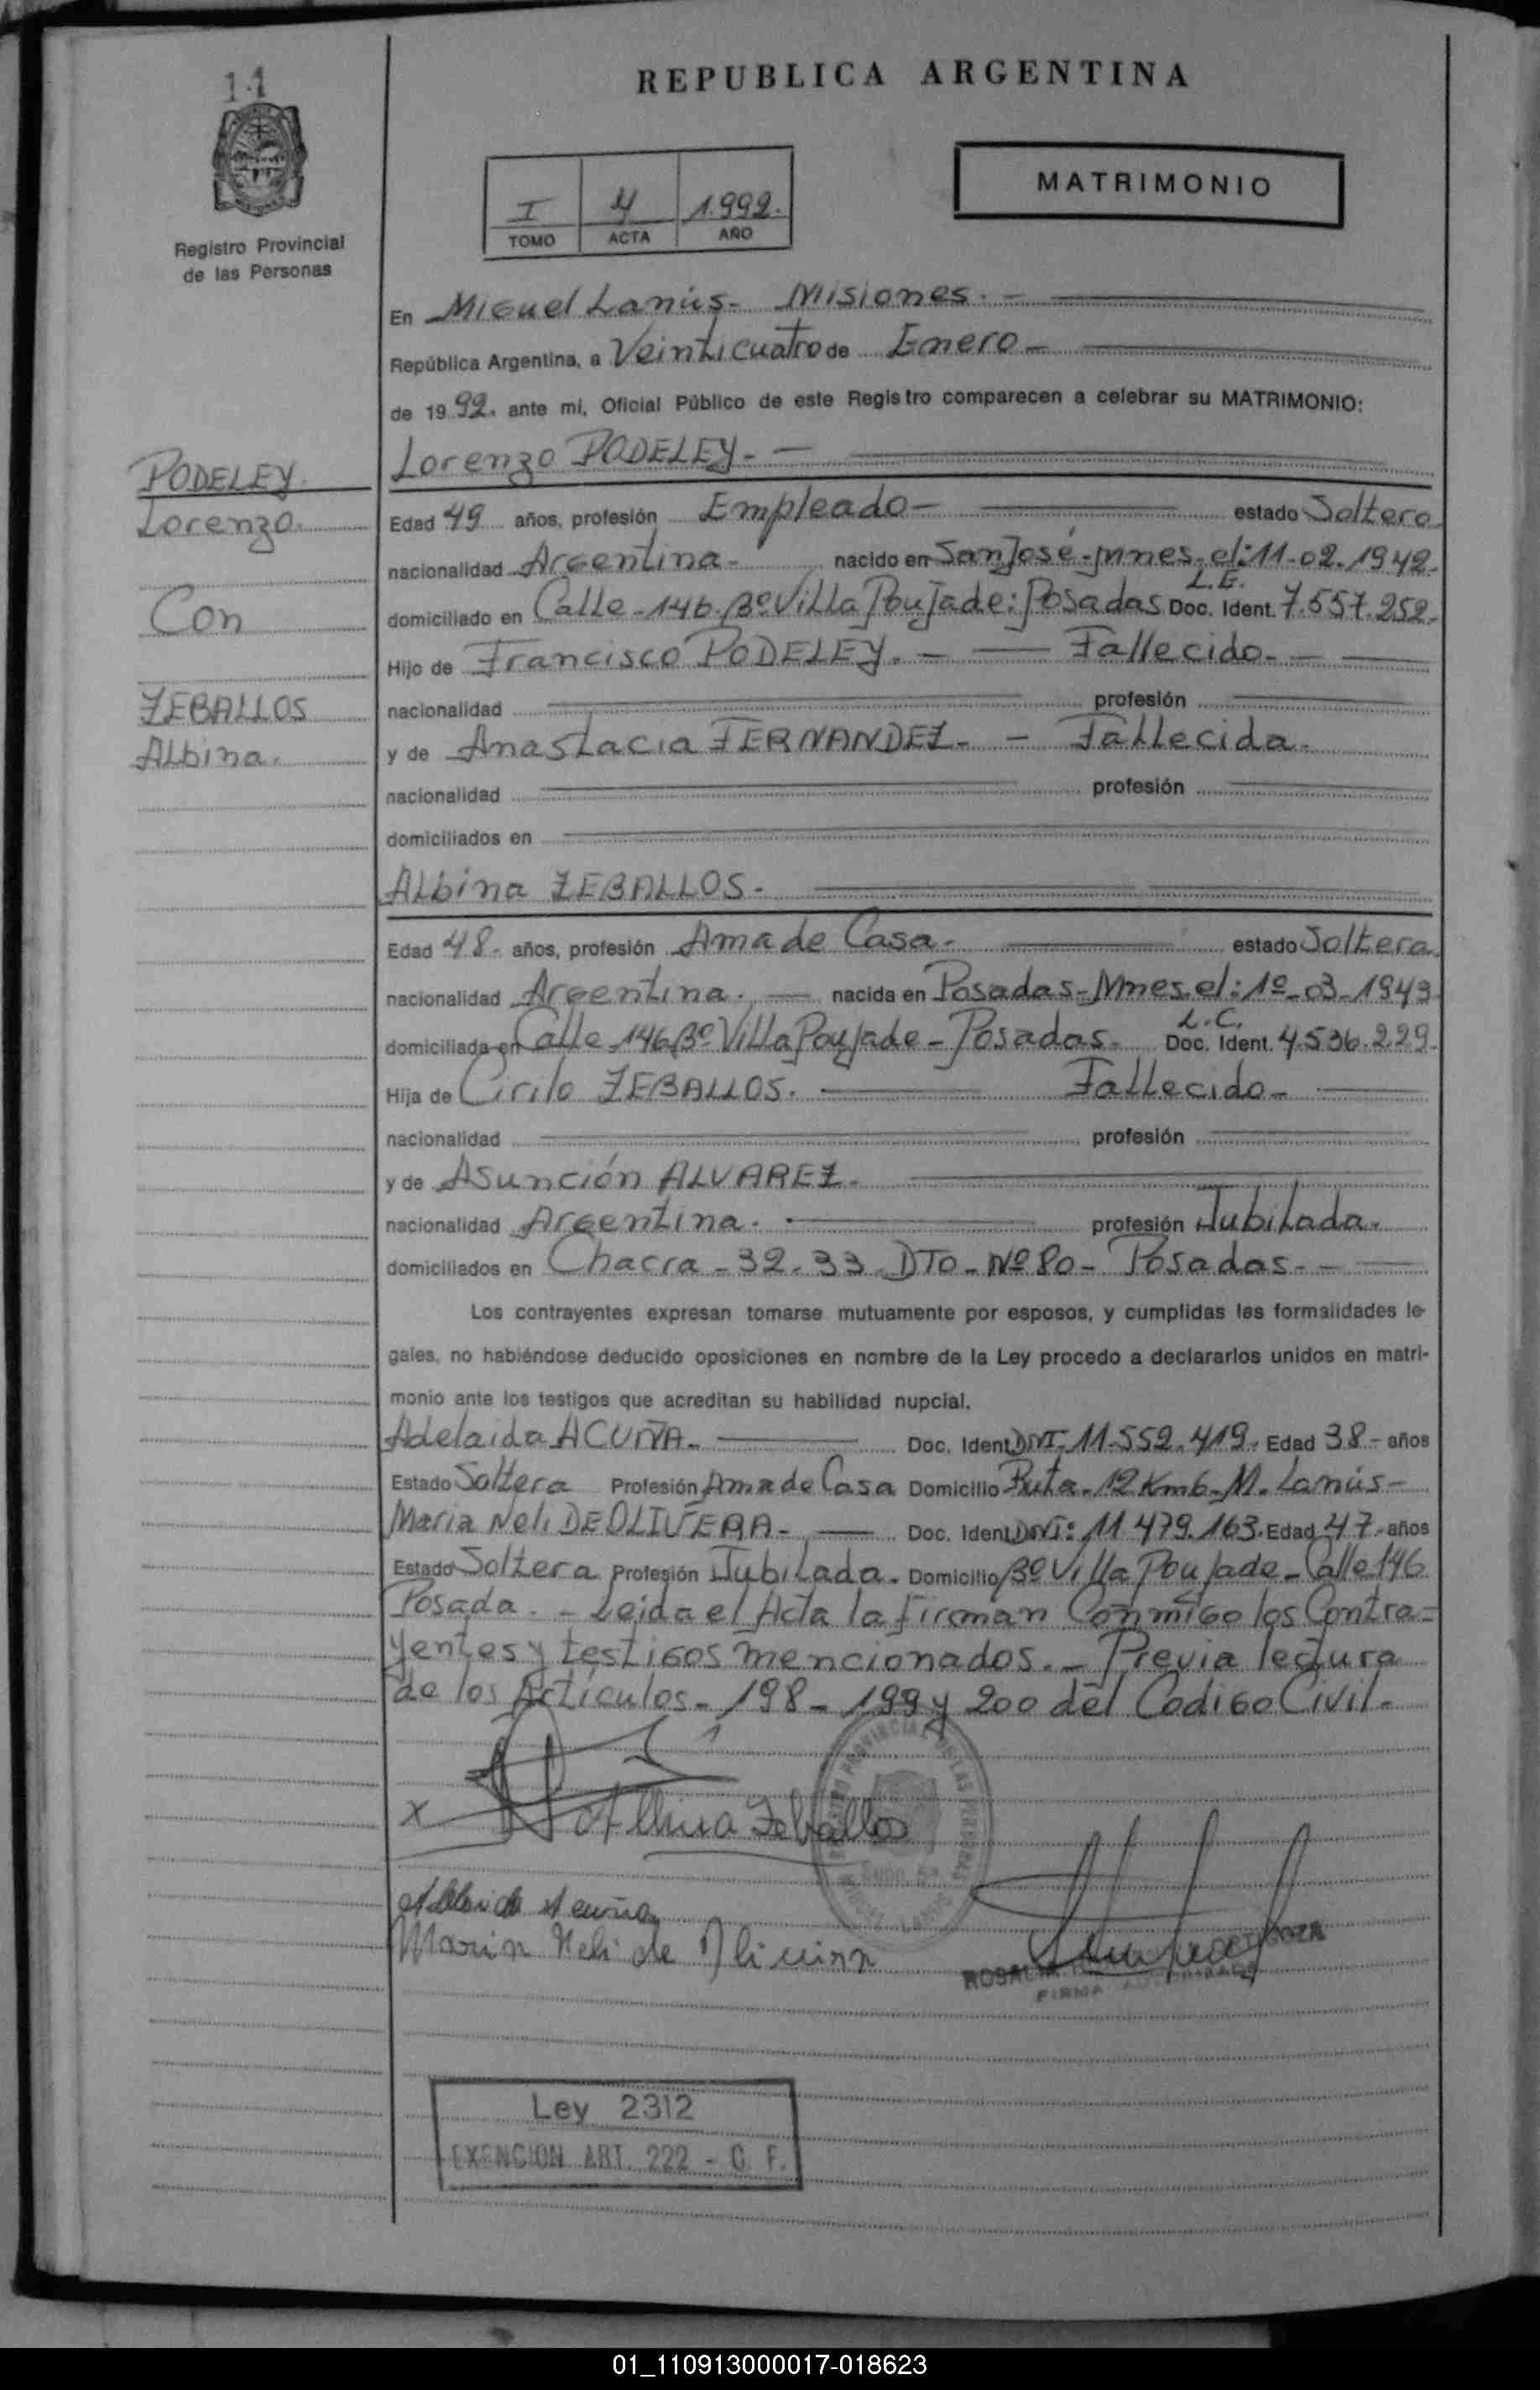 11
REPUBLICA ARGENTINA
MATRIMONIO
I 4 1.992.
TOMO ACTA AÑO
Registro Provincial
de las Personas
En Miguel Lanús- Misiones. -
República Argentina, a Veinticuatro de Enero -
de 1992. ante mi, Oficial Público de este Registro comparecen a celebrar su MATRIMONIO:
Lorenzo PODELEY. -
PODELEY
Lorenzo.
Con
ZEBALLOS
Albina.
Edad 49 años, profesión Empleado - estado Soltero.
nacionalidad Argentina - nacido en San José - Mnes. el: 11-02.1942.
domiciliado en Calle -146. Bº Villa Poujade: Posadas L.E. Doc. Ident. 7.557.252.
Hijo de Francisco PODELEY. - Fallecido. -
nacionalidad profesión
y de Anastacia FERNANDEZ. - Fallecida.
nacionalidad profesión
domiciliados en
Albina ZEBALLOS.
Edad 48- años, profesión Ama de Casa. estado Soltera.
nacionalidad Argentina. - nacida en Posadas - Mnes. el: 1º-03-1943
domiciliada en Calle -146 Bº Villa Poujade - Posadas. L.C. Doc. Ident. 4.536.229.
Hija de Cirilo ZEBALLOS. Fallecido -
nacionalidad profesión
y de Asunción ALVAREZ.
nacionalidad Argentina. profesión Jubilada.
domiciliados en Chacra - 32. 33. DTO - Nº 80 - Posadas. -
Los contrayentes expresan tomarse mutuamente por esposos, y cumplidas las formalidades le-
gales, no habiéndose deducido oposiciones en nombre de la Ley procedo a declararlos unidos en matri-
monio ante los testigos que acreditan su habilidad nupcial.
Adelaida ACUÑA. Doc. Ident DNI- 11.552.419. Edad 38- años
Estado Soltera Profesión Ama de Casa Domicilio Ruta- 12 Km 6- M. Lanús -
Maria Neli DEOLIVERA - Doc. Ident DNI: 11 479.163. Edad 47- años
Estado Soltera Profesión Jubilada. Domicilio Bº Villa Poujade - Calle 146
Posada. - Leida el Acta la firman Conmigo los Contra-
yentes y testigos mencionados. - Previa lectura
de los Artículos - 198 - 199 y 200 del Codigo Civil -
x Albina Zeballos
Adelaida Acuña
Maria Neli de Olivera
FIRMA
Ley 2312
EXENCION ART. 222 - C. F.
01_110913000017-018623